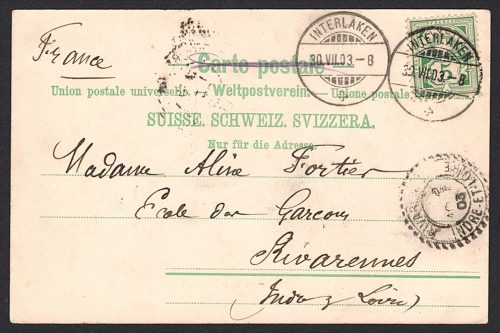 INTERLAKEN
30.VII.03.-8
INTERLAKEN
30.VII.03.-8
France
Carte postale
Union postale universelle. Weltpostverein. Unione postale
SUISSE. SCHWEIZ. SVIZZERA.
Nur für die Adresse
Madame Aline Fortier
Ecole des Garçons
Rivarennes
(Indre & Loire)
INDRE-ET-LOIRE
03